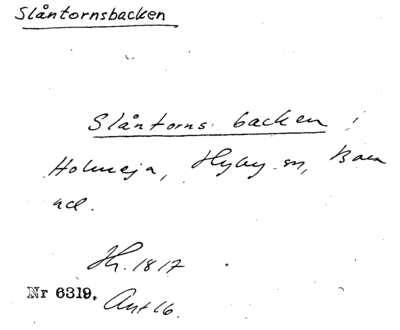 Slåntornsbacken
Slåntorns backen i
Holmeja, Hyby sn, Bara
hd.
Hr. 1817
Nr 6319. Ant 16.